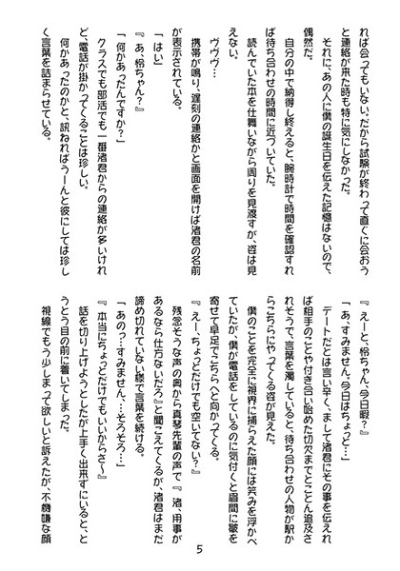 れば会ってもいない。だから試験が終わって直ぐに会おう
と連絡が来た時も特に気にしなかった。
それに、あの人に僕の誕生日を伝えた記憶はないので、
偶然だ。
自分の中で納得し終えると、腕時計で時間を確認すれ
ば待ち合わせの時間に近づいていた。
読んでいた本を仕舞いながら周りを見渡すが、姿は見
えない。
ヴヴヴ…
携帯が鳴り、遅刻の連絡かと画面を開けば渚君の名前
が表示されている。
「はい」
『あ、怜ちゃん?』
「何かあったんですか?」
クラスでも部活でも一番渚君からの連絡が多いけれ
ど、電話が掛かってくることは珍しい。
何かあったのかと、訊ねればうーんと彼にしては珍し
く言葉を詰まらせている。
『えーと、怜ちゃん、今日暇?』
「あ、すみません、今日はちょっと…」
デートだとは言い辛く、まして渚君にその事を伝えれ
ば相手のことや付き合い始めた切欠までとことん追及さ
れそうで、言葉を濁していると、待ち合わせの人物が駅か
らこちらにやってくる姿が見えた。
僕のことを完全に視界に捕らえた顔には笑みを浮かべ
ていたが、僕が電話をしているのに気付くと眉間に皺を
寄せて早足でこちらへと向かってくる。
『えー、ちょっとだけでも空いてない?』
残念そうな声の奥から真琴先輩の声で『渚、用事が
あるなら仕方ないだろ』と聞こえてくるが、渚君はまだ
諦め切れていない様で言葉を続ける。
「あの…すみません、…そろそろ…」
『本当にちょっとだけでもいいからさ〜』
話を切り上げようとしたが上手く出来ずにいると、と
うとう目の前に着いてしまった。
視線でもう少しまって欲しいと訴えたが、不機嫌な顔
5